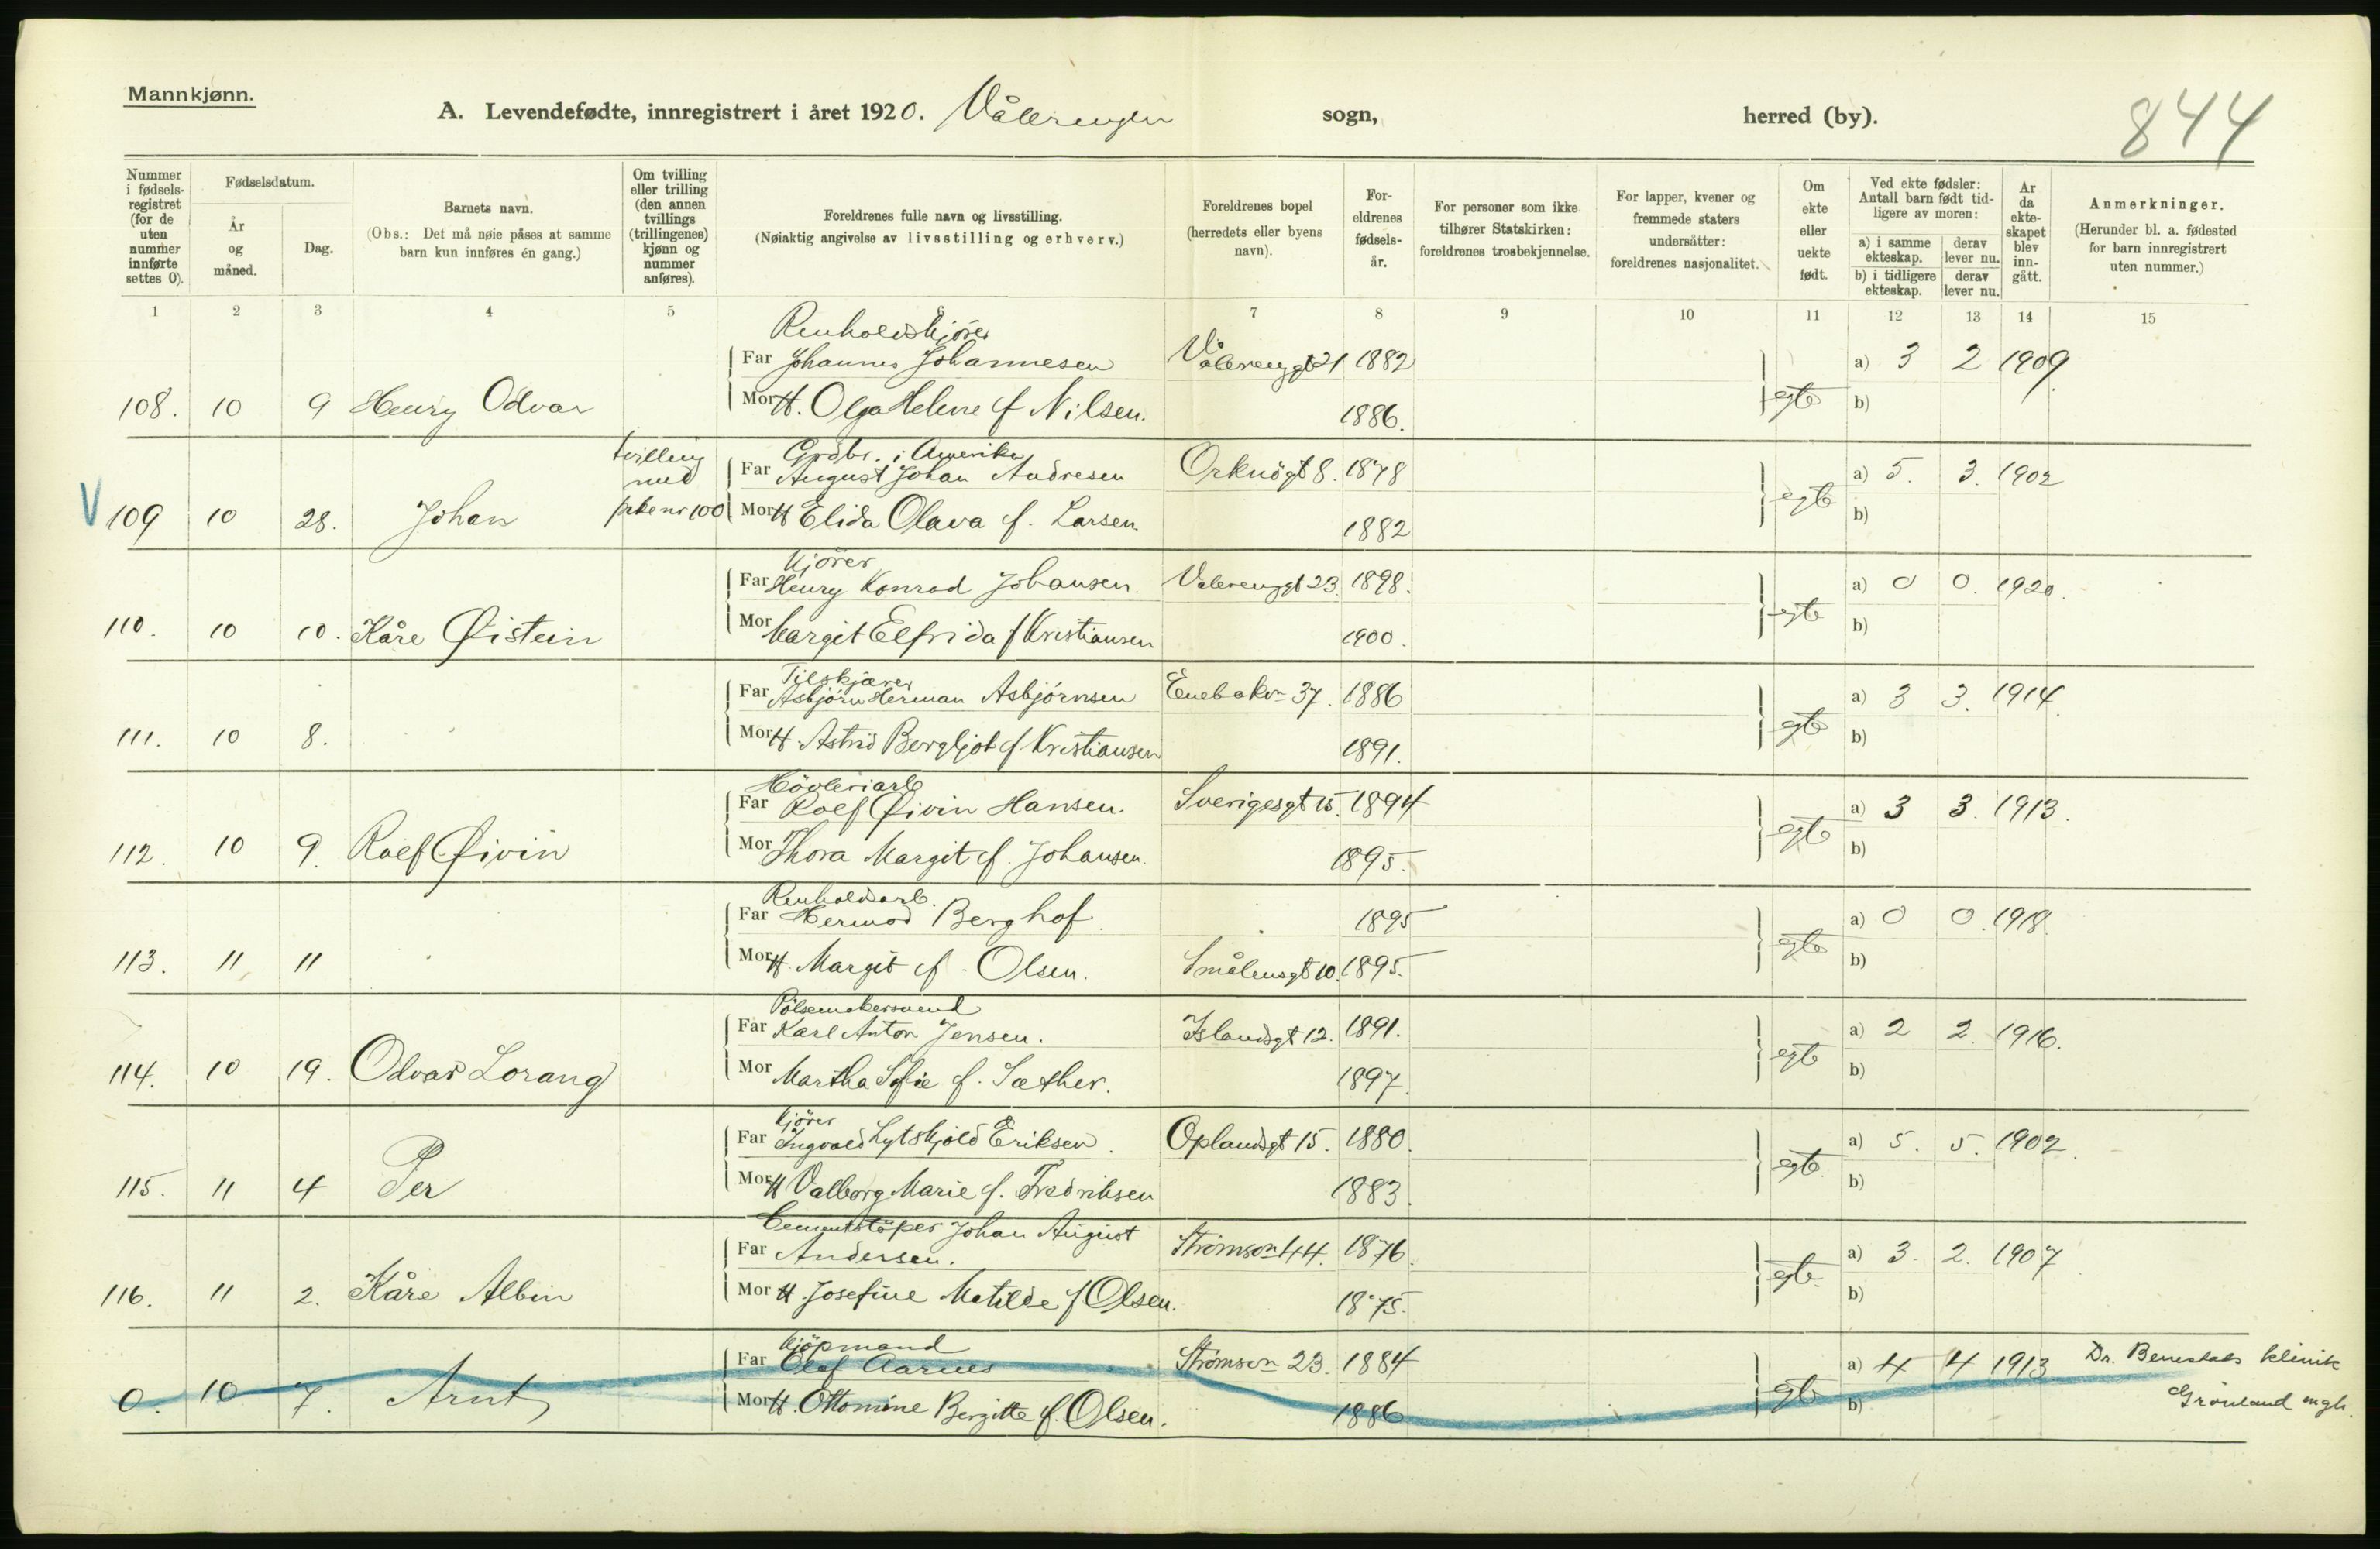 Mannkjønn.
A. Levendefødte, innregistrert i året 1920. Vålerengen sogn, herred (by).
844
Nummer i fødsels-registret (for de uten nummer innførte settes 0).
Fødselsdatum.
År og måned.
Dag.
Barnets navn.
(Obs.: Det må nøie påses at samme barn kun innføres én gang.)
Om tvilling eller trilling (den annen tvillings (trillingenes) kjønn og nummer anføres).
Foreldrenes fulle navn og livsstilling.
(Nøiaktig angivelse av livsstilling og erhverv.)
Foreldrenes bopel (herredets eller byens navn).
For-eldrenes fødsels-år.
For personer som ikke tilhører Statskirken: foreldrenes trosbekjennelse.
For lapper, kvener og fremmede staters undersåtter: foreldrenes nasjonalitet.
Om ekte eller uekte født.
Ved ekte fødsler: Antall barn født tid-ligere av moren:
a) i samme ekteskap. derav lever nu.
b) i tidligere ekteskap. derav lever nu.
År da ekte-skapet blev inn-gått.
Anmerkninger.
(Herunder bl. a. fødested for barn innregistrert uten nummer.)
1 2 3 4 5 6 7 8 9 10 11 12 13 14 15
Renholdskjører
Far Johannes Johannesen Vålerenggt 21 1882 a) 3 2 1909
108. 10 9 Henry Odvar Mor H. Olga Helene f Nilsen. 1886. egte b)
tvilling Grdbr. i Amerika
med Far August Johan Andresen Orknögt 8. 1878 a) 5. 3. 1902
V 109 10 28. Johan pike nr 100 Mor H Elida Olava f. Larsen. 1882 egte b)
Kjörer
Far Henry Konrad Johansen. Valerenggt 23. 1898. a) 0 0. 1920.
110. 10 10. Kåre Øistein Mor Margit Elfrida f Kristiansen 1900. egte b)
Tilskjærer
Far Asbjörn Herman Asbjörnsen Enebakvn 37. 1886 a) 3 3. 1914.
111. 10 8. Mor H. Astrid Bergljot f Kristiansen 1891. egte b)
Hövleriarb
Far Rolf Øivin Hansen. Sverigesgt 15. 1894 a) 3 3. 1913.
112. 10 9. Rolf Øivin Mor Thora Margit f. Johansen. 1895. egte b)
Renholdsarb.
Far Hermod Berghof. 1895 a) 0 0. 1918.
113. 11 11 Mor H. Margit f. Olsen. Smålensgt 10. 1895. egte b)
Pölsemakersvend
Far Karl Anton Jensen. Islandsgt 12. 1891. a) 2 2. 1916.
114. 10 19. Odvar Lorang Mor Martha Sofie f. Sæther. 1897. egte b)
Kjörer
Far Ingvald Lytskjold Eriksen. Oplandsgt 15. 1880. a) 5. 5. 1902.
115. 11 4 Per Mor H Valborg Marie f. Fredriksen 1883. egte b)
Cementstöper Johan August
Far Andersen. Strömsvn 44. 1876. a) 3. 2. 1907
116. 11 2. Kåre Albin Mor H. Josefine Matilde f Olsen. 1875. egte b)
Kjöpmand
Far Olaf Aarnes Strömsvn 23. 1884 a) 4 4 1913 Dr. Benestads klinik
0. 10 7. Arnt Mor H. Ottomine Bergitte f. Olsen. 1886 egte b) Grönland mgh.